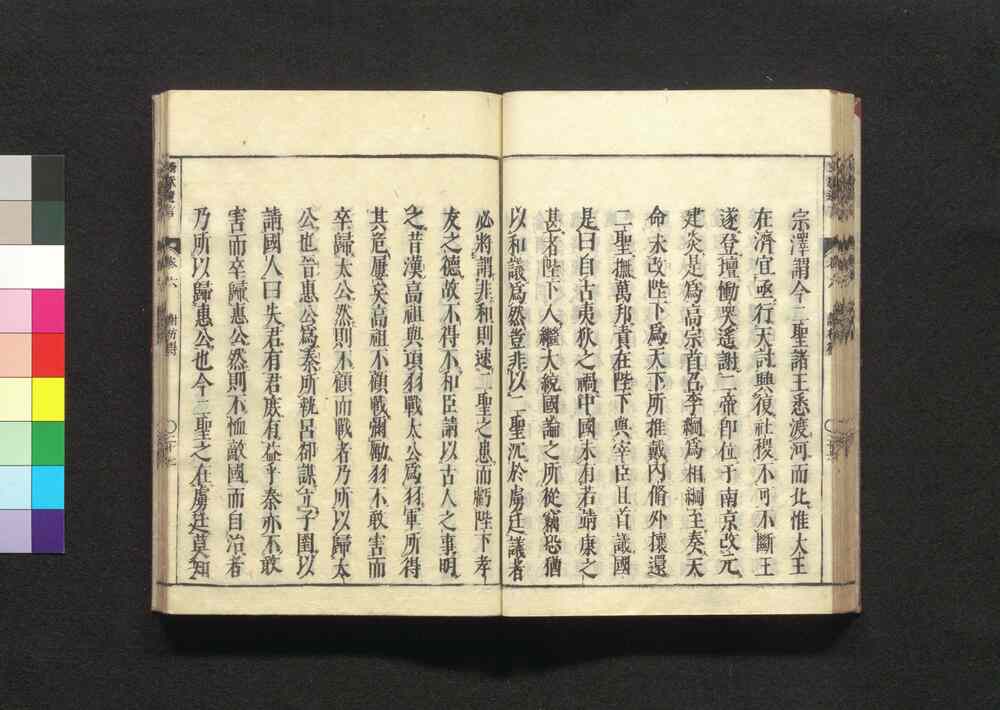 宗澤謂今二聖諸王悉渡河而北惟大王
在濟宜亟行天討興復社稷不可不斷王
遂登壇慟哭遙謝二帝即位于南京改元
建炎是爲高宗首召李綱爲相綱至奏天
命未改陛下爲天下所推戴內脩外攘還
二聖撫萬邦責在陛下與宰臣且首議國
是曰自古夷狄之禍中國未有若靖康之
甚者陛下人繼大統國論之所從竊恐猶
以和議爲然豈非以二聖沉於虜廷議者
必將謂非和則速二聖之患而虧陛下孝
友之德故不得不和臣請以古人之事明
之昔漢高祖與項羽戰太公爲羽軍所得
其危屢矣高祖不顧戰彌勵羽不敢害而
卒歸太公然則不顧而戰者乃所以歸太
公也晉惠公爲秦所執呂郤謀立子圉以
請國人曰失君有君族有益乎秦亦不敢
害而卒歸惠公然則不恤敵國而自治者
乃所以歸惠公也今二聖之在虜廷莫知
卷六
謝枋得